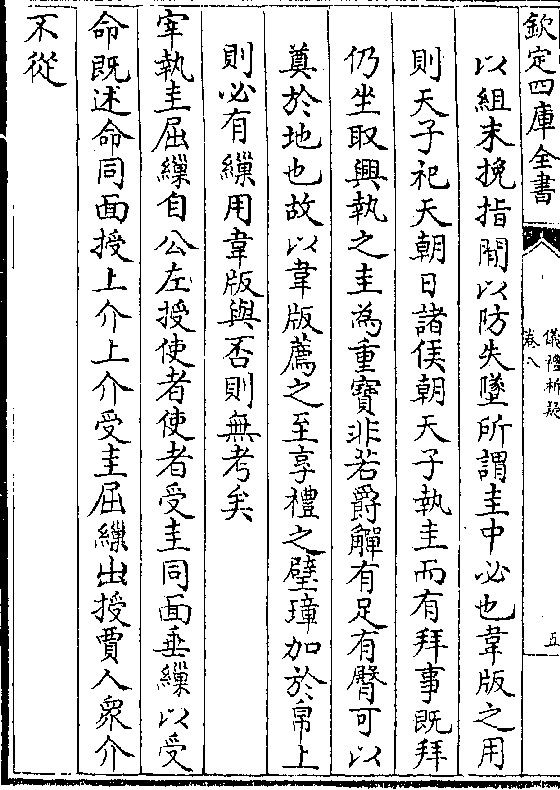 欽定四庫全書
儀禮析疑
卷八
五
以組末挽指閒以防失墜所謂圭中必也韋版之用
則天子祀天朝日諸侯朝天子執圭而有拜事既拜
仍坐取興執之圭為重寶非若爵觶有足有臀可以
奠於地也故以韋版薦之至享禮之璧璋加於帛上
則必有繅用韋版與否則無考矣
宰執圭屈繅自公左授使者使者受圭同面垂繅以受
命既述命同面授上介上介受圭屈繅出授賈人衆介
不從